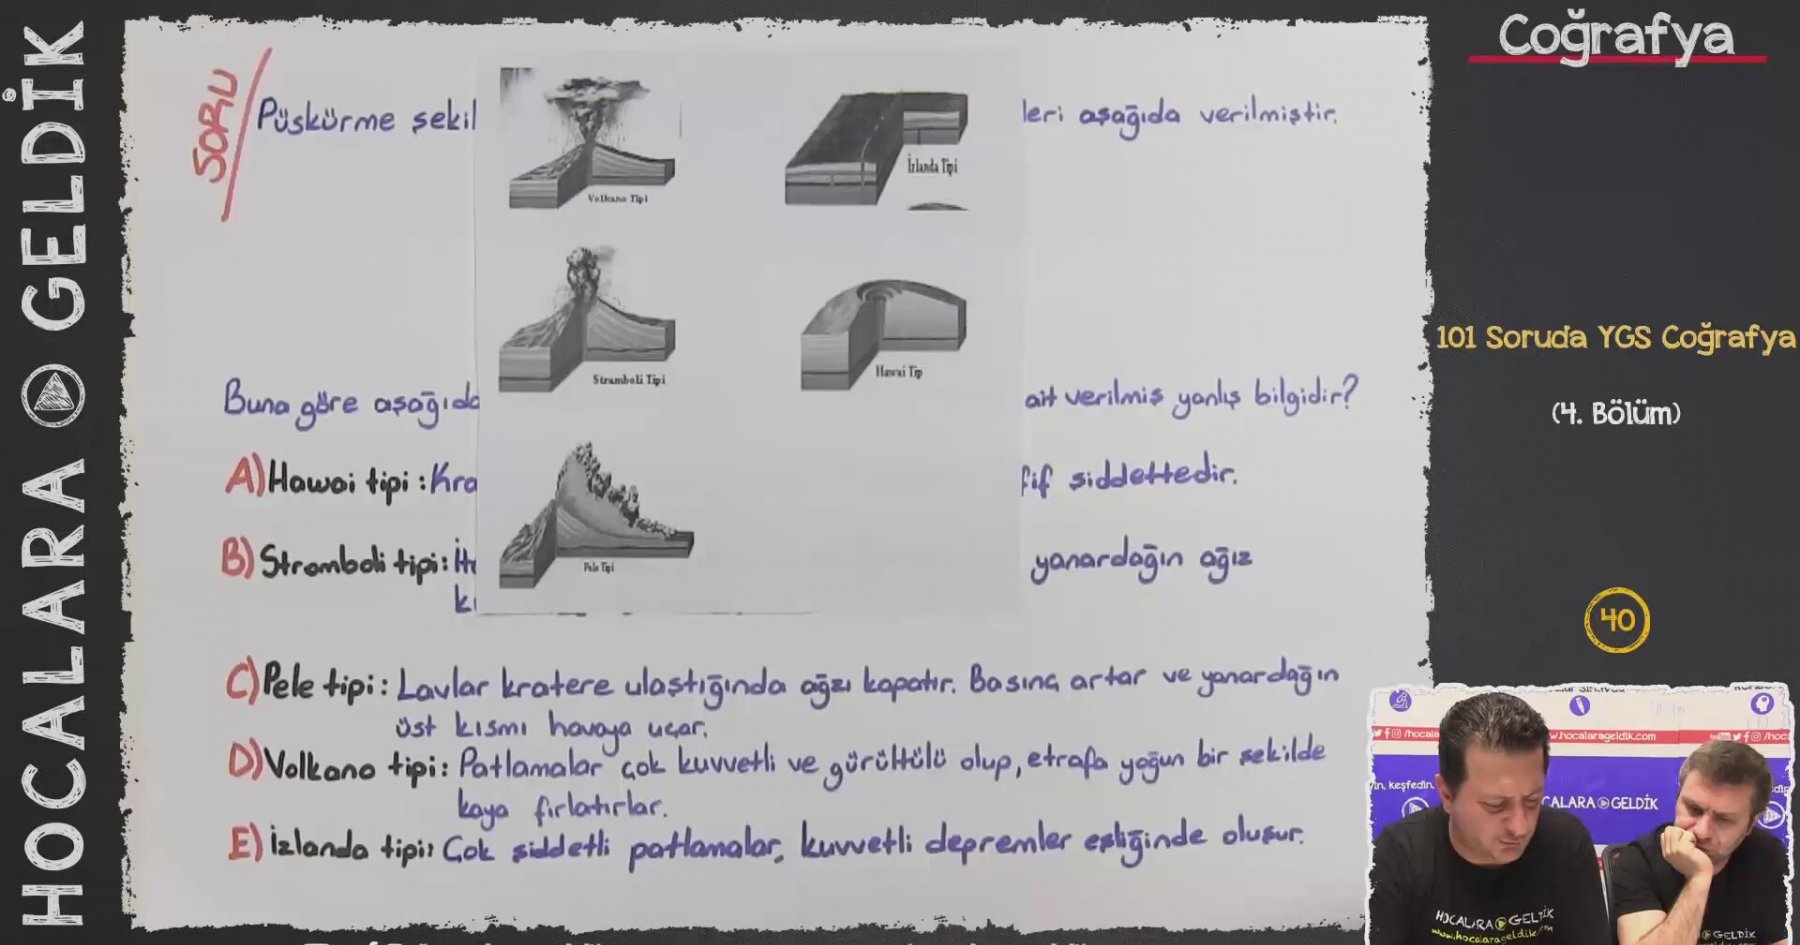 HOCALARA GELDİK
Coğrafya
101 Soruda YGS Coğrafya
(4. Bölüm)
40
SORU
Püskürme şekil
leri aşağıda verilmiştir.
Volkano Tipi
İzlanda Tipi
Stramboli Tipi
Hawai Tip
Pele Tipi
Buna göre aşağıda
ait verilmiş yanlış bilgidir?
A) Hawai tipi : Kra
fif şiddettedir.
B) Stromboli tipi : İt
yanardağın ağız
C) Pele tipi : Lavlar kratere ulaştığında ağzı kapatır. Basınç artar ve yanardağın
üst kısmı havaya uçar.
D) Volkano tipi : Patlamalar çok kuvvetli ve gürültülü olup, etrafa yoğun bir şekilde
kaya fırlatırlar.
E) İzlanda tipi: Çok şiddetli patlamalar, kuvvetli depremler eşliğinde oluşur.
www.hocalarageldik.com
HOCALARA GELDİK
HOCALARA GELDİK
www.hocalarageldik.com
GELDİK